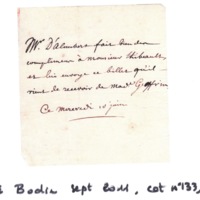 Mr. D'alembert fait bien des
complimens à monsieur Thibeault
et lui envoye ce billet qu'il
vient de recevoir de made Geoffrin
Ce mercredi 10 juin
Bodin sept 2011, cat n°133,